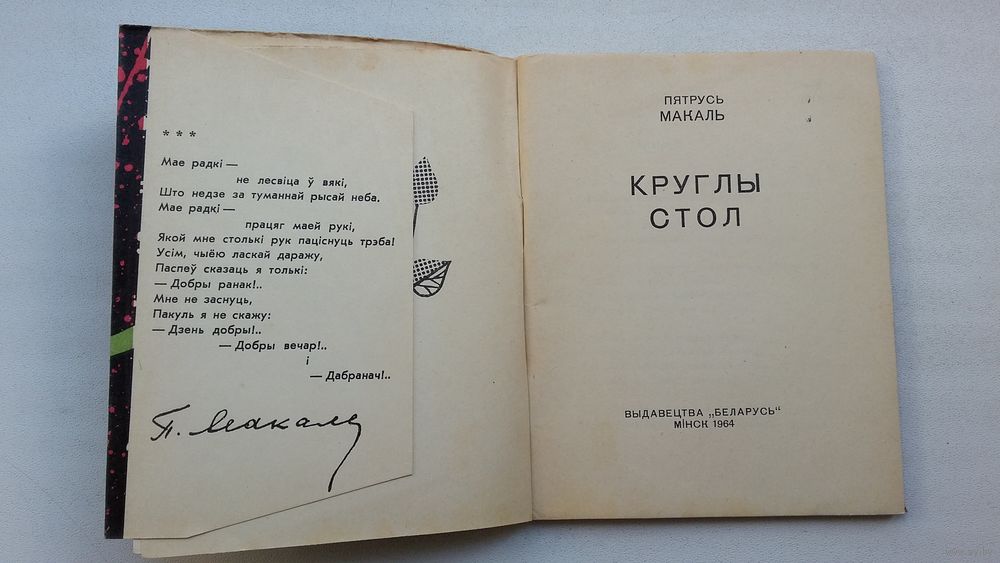 * * *
Мае радкі —
не лесвіца ў вякі,
Што недзе за туманнай рысай неба.
Мае радкі —
працяг маей рукі,
Якой мне столькі рук паціснуць трэба!
Усім, чыёю ласкай даражу,
Паспеў сказаць я толькі:
— Добры ранак!..
Мне не заснуць,
Пакуль я не скажу:
— Дзень добры!..
— Добры вечар!..
і
— Дабранач!..
П. Макаль
ПЯТРУСЬ
МАКАЛЬ
КРУГЛЫ
СТОЛ
ВЫДАВЕЦТВА „БЕЛАРУСЬ"
МІНСК 1964